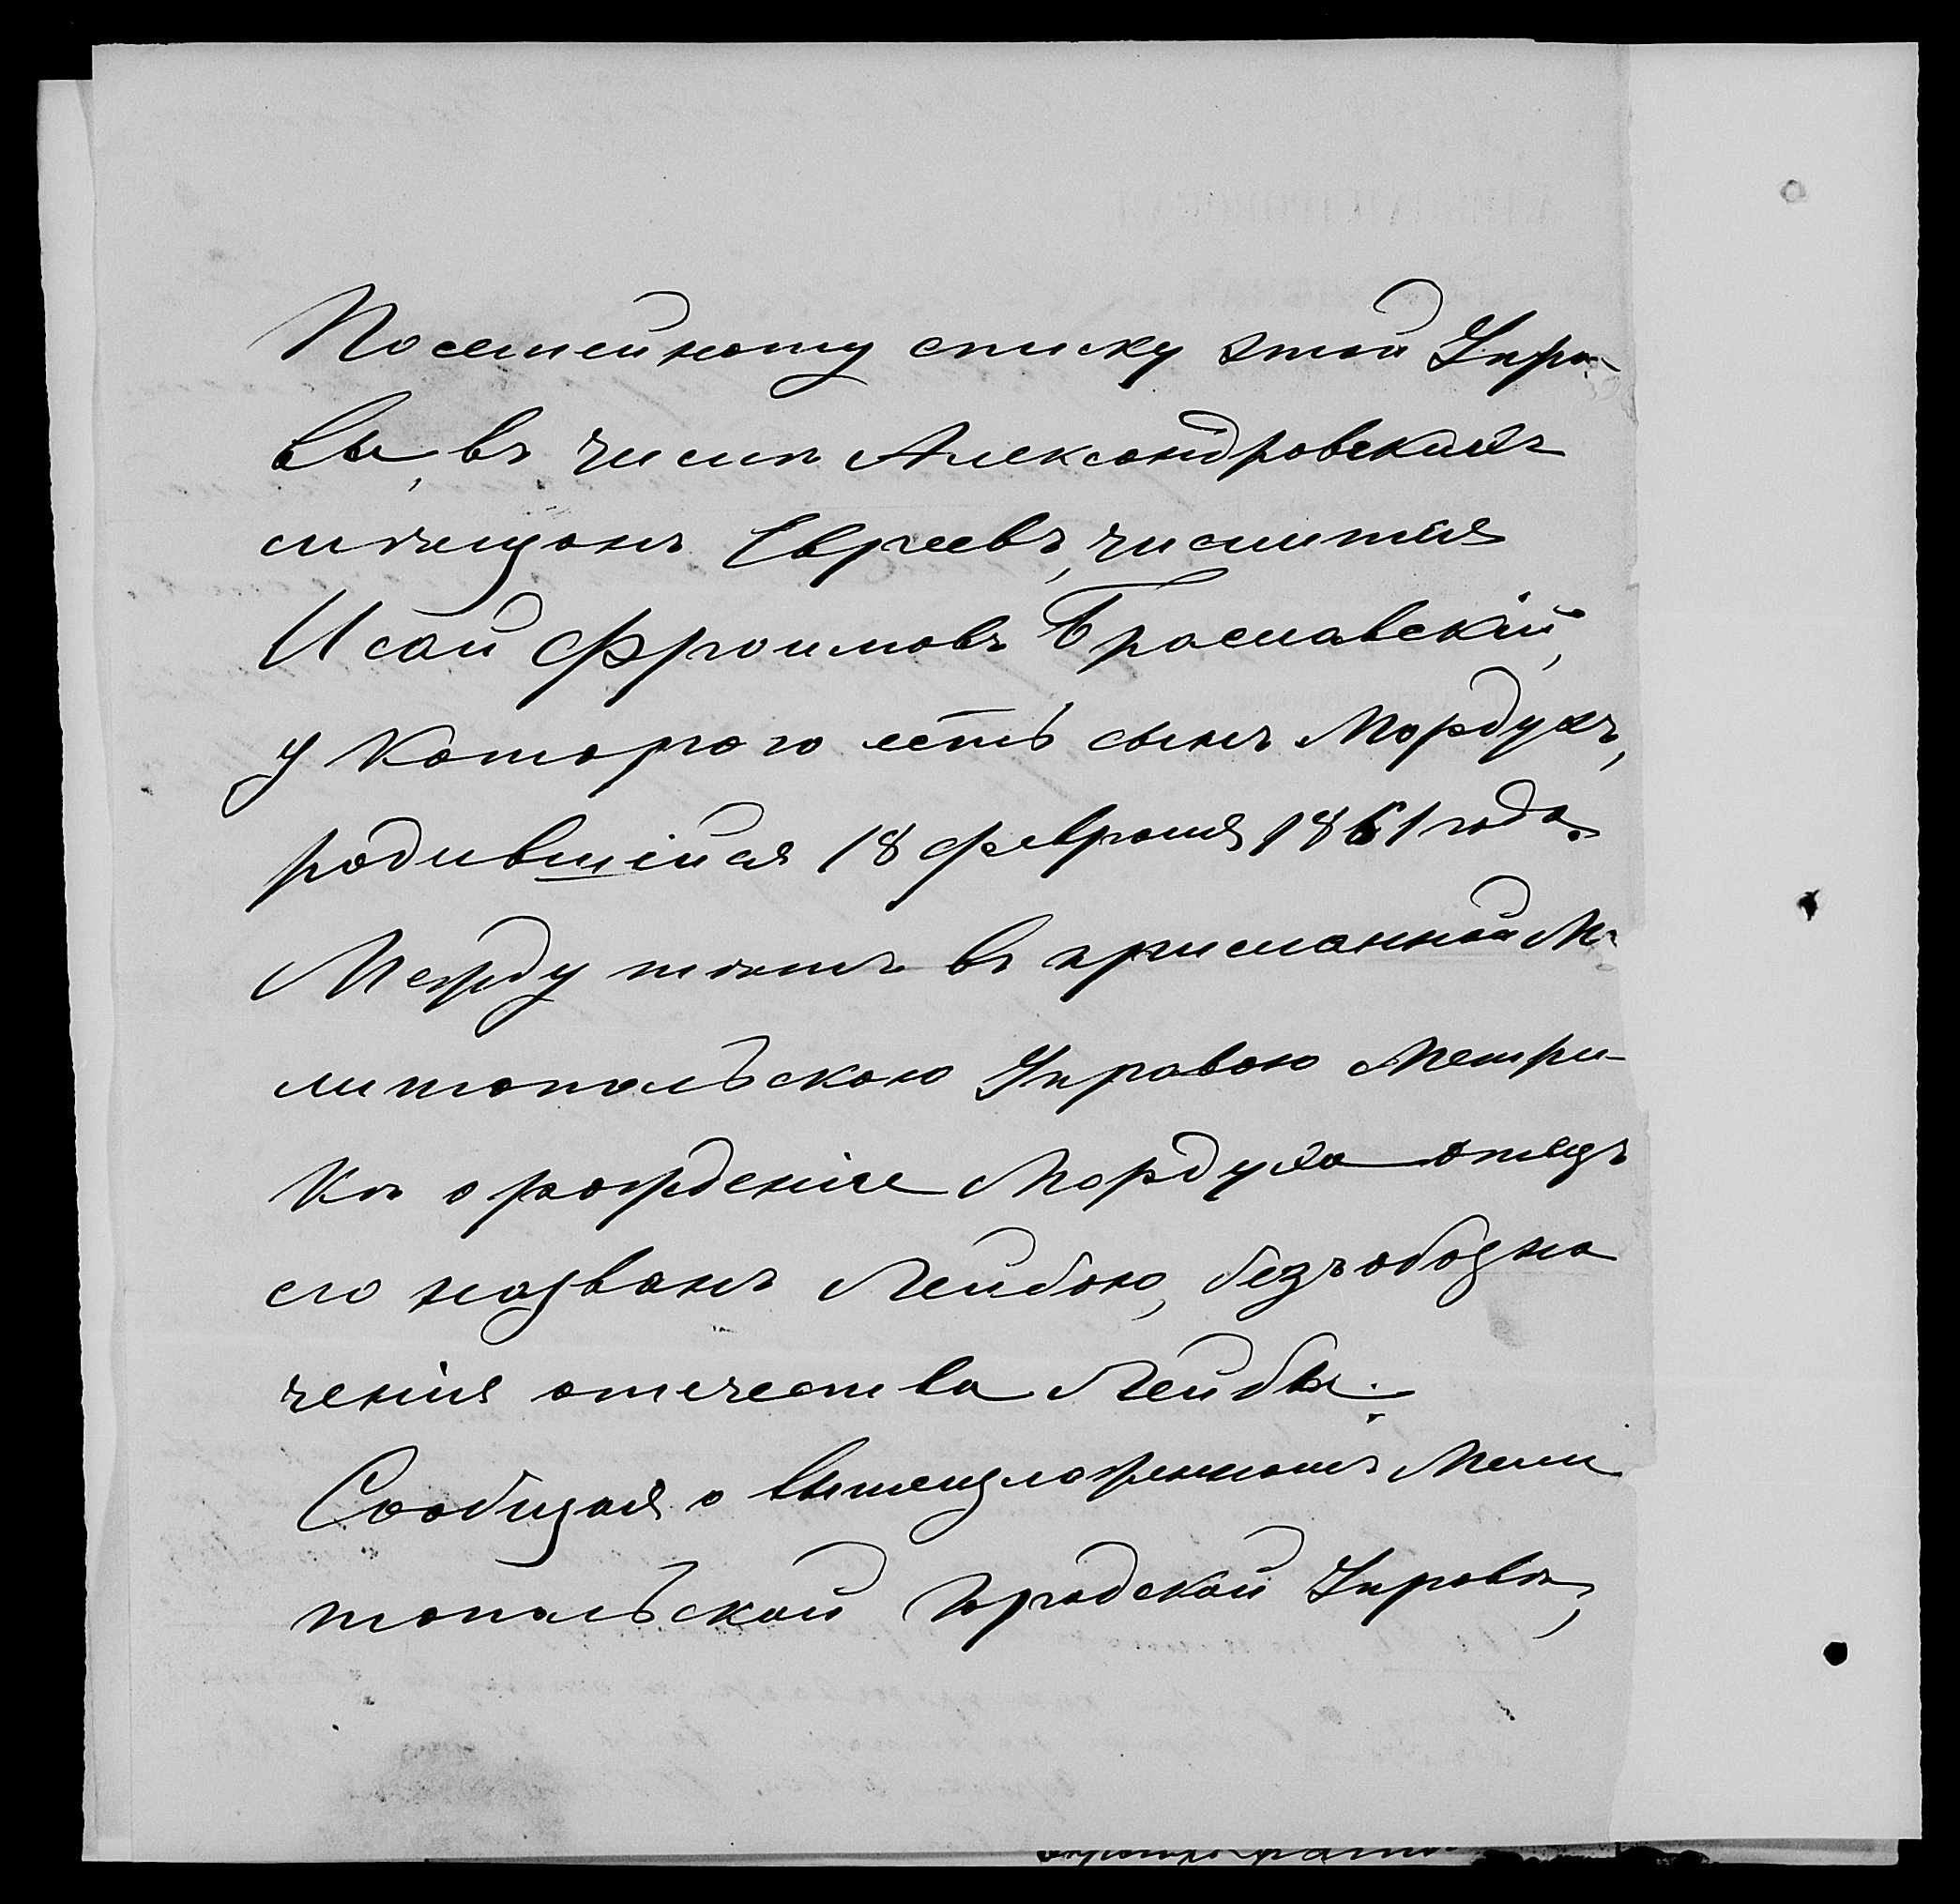 Посемейному списку этой Упра-
вы, въ числѣ Александровскихъ
мѣщанъ Евреевъ, числится
Исай Фроимовъ Браславскій,
у котораго есть сынъ Мордухъ,
родившійся 18 февраля 1861 года.
Между тѣмъ въ присланной Ме
литопольскою Управою Метри-
кѣ о рожденіе Мордуха отецъ
его названъ Лейбою, безъ обозна
ченія отечества Лейбы.
Сообщая о вышеизложенномъ Мели
топольской Городской Управѣ,